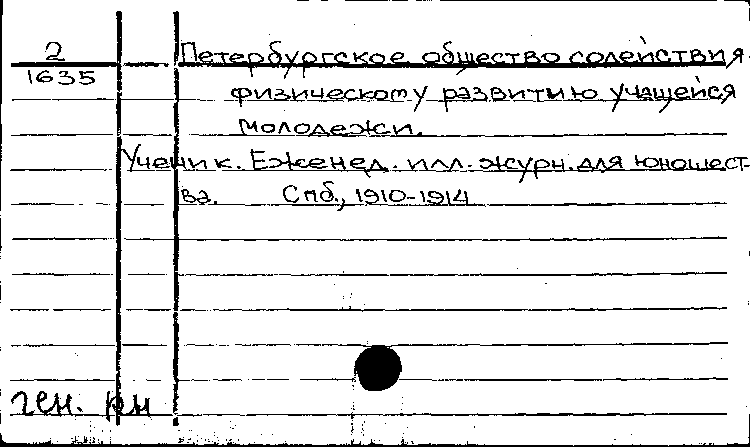 2
1635
Петербургское общество содействия
физическому развитию учащейся
молодежи.
Ученик. Еженед. илл. журн. для юношест-
ва. Спб., 1910-1914
ген. кн